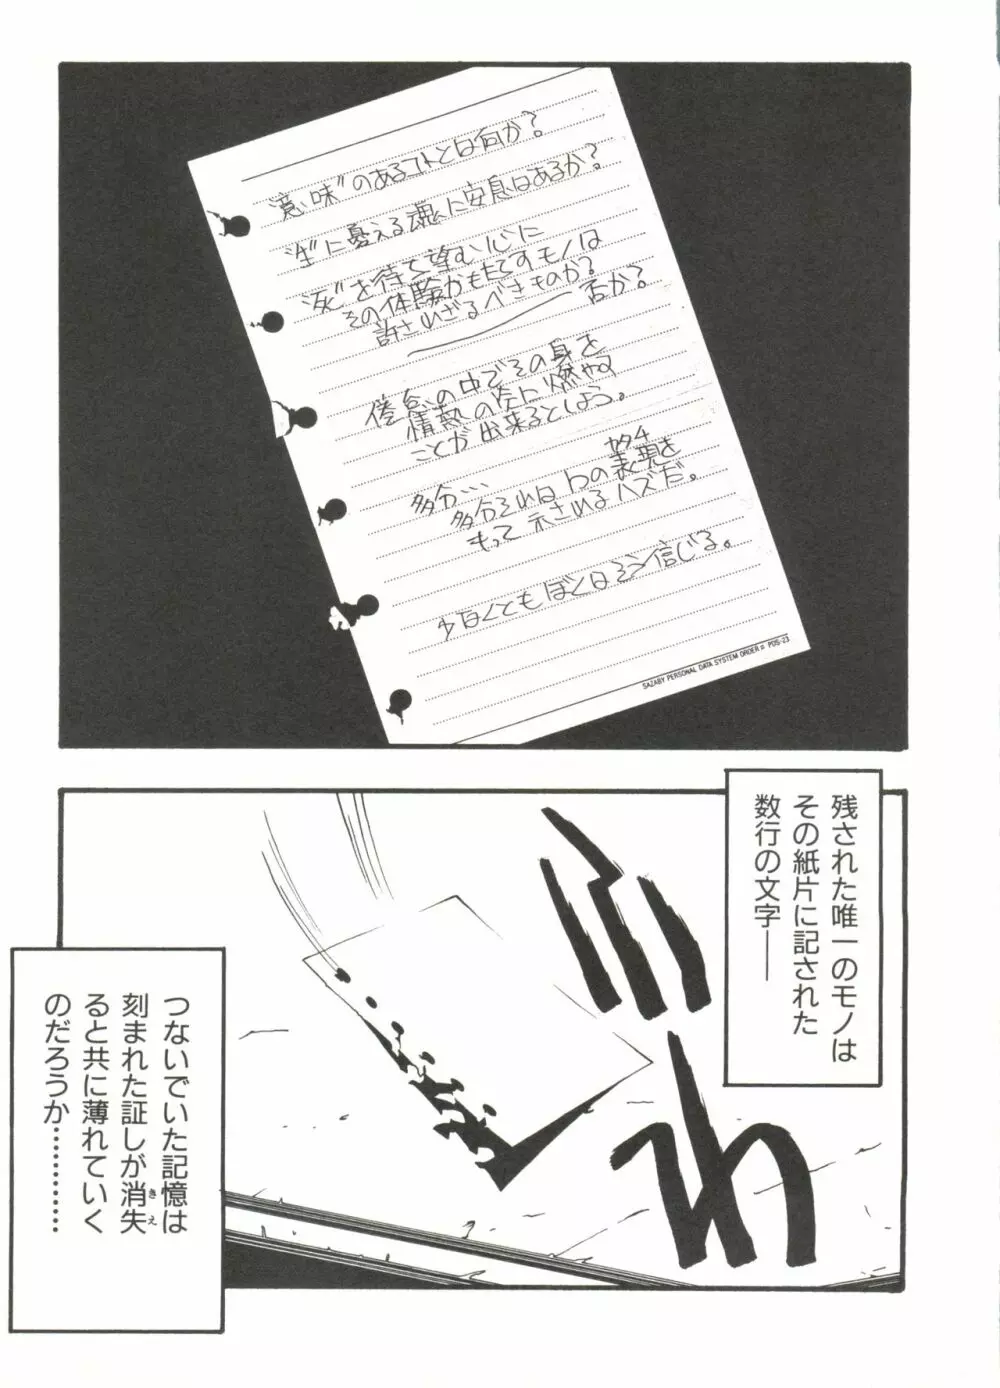 “意味”のあるコトとは何か?
“生”に憂える魂に安息はあるか?
“死”を待て望む心に
その体験がもたらすモノは
許されざるべきものか?
否か?
倦怠の中でその身を
情熱の炎に燃やす
ことが出来るとしよう。
多分…
多分それはbの表現を
もって示されるハズだ。
少なくともぼくはそう信じる。
SAZABY PERSONAL DATA SYSTEM ORDER# PDS-23
残された唯一のモノは
その紙片に記された
数行の文字――
ふわ
つないでいた記憶は
刻まれた証しが消失(きえ)
ると共に薄れていく
のだろうか…………